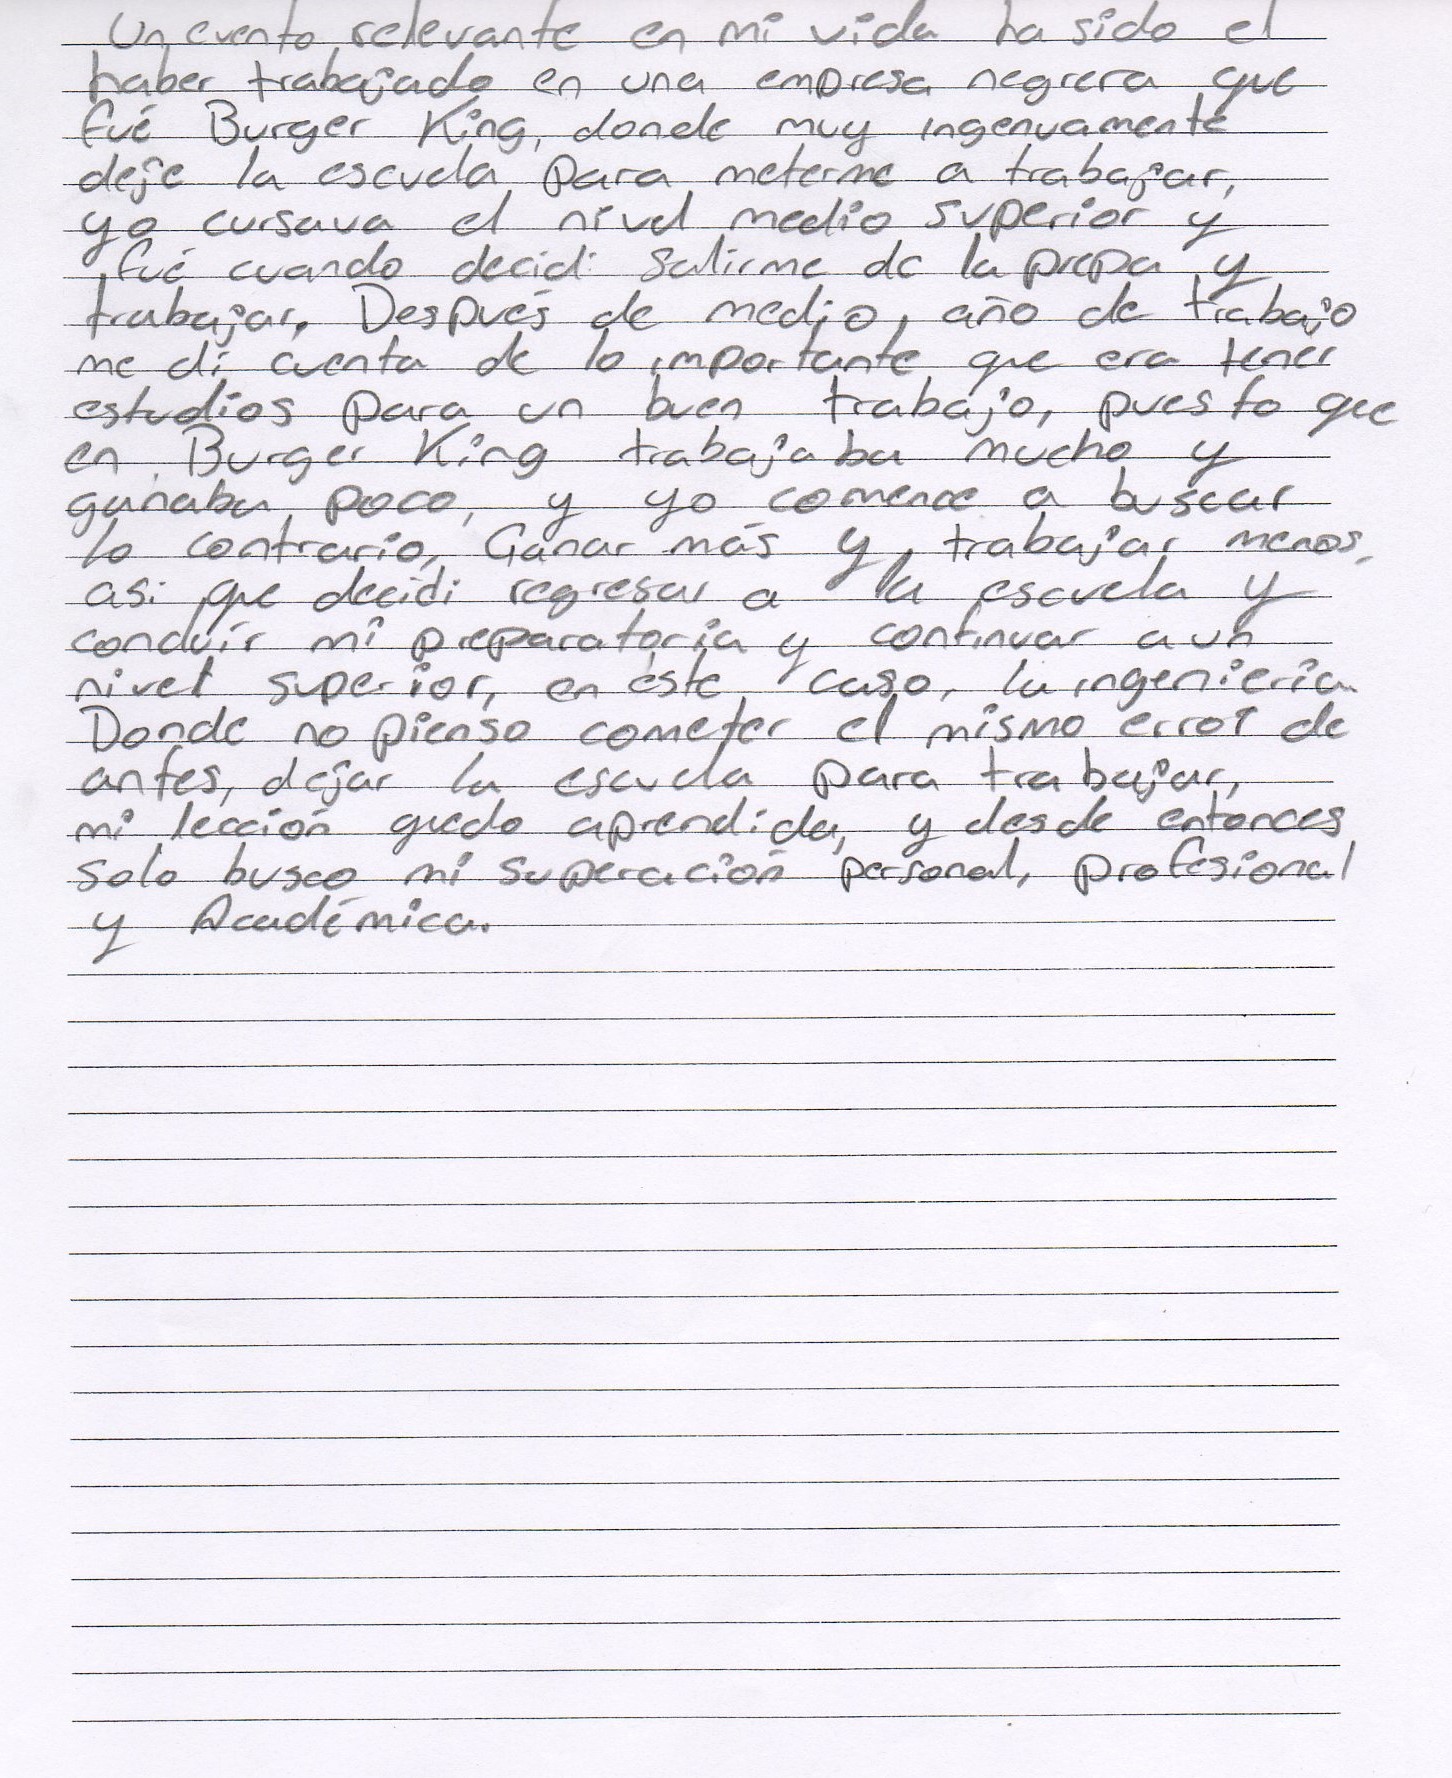 Un evento relevante en mi vida ha sido el
haber trabajado en una empresa negrera que
fué Burger King, donde muy ingenuamente
deje la escuela para meterme a trabajar,
yo cursava el nivel medio superior y
fué cuando decidi salirme de la prepa y
trabajar. Después de medio año de trabajo
me di cuenta de lo importante que era tener
estudios para un buen trabajo, puesto que
en Burger King trabajaba mucho y
ganaba poco, y yo comence a buscar
lo contrario, Ganar más y trabajar menos,
asi que decidi regresar a la escuela y
concluir mi preparatoria y continuar a un
nivel superior, en éste caso, la ingenieria.
Donde no pienso cometer el mismo error de
antes, dejar la escuela para trabajar,
mi lección quedo aprendida, y desde entonces
solo busco mi superación personal, profesional
y Académica.